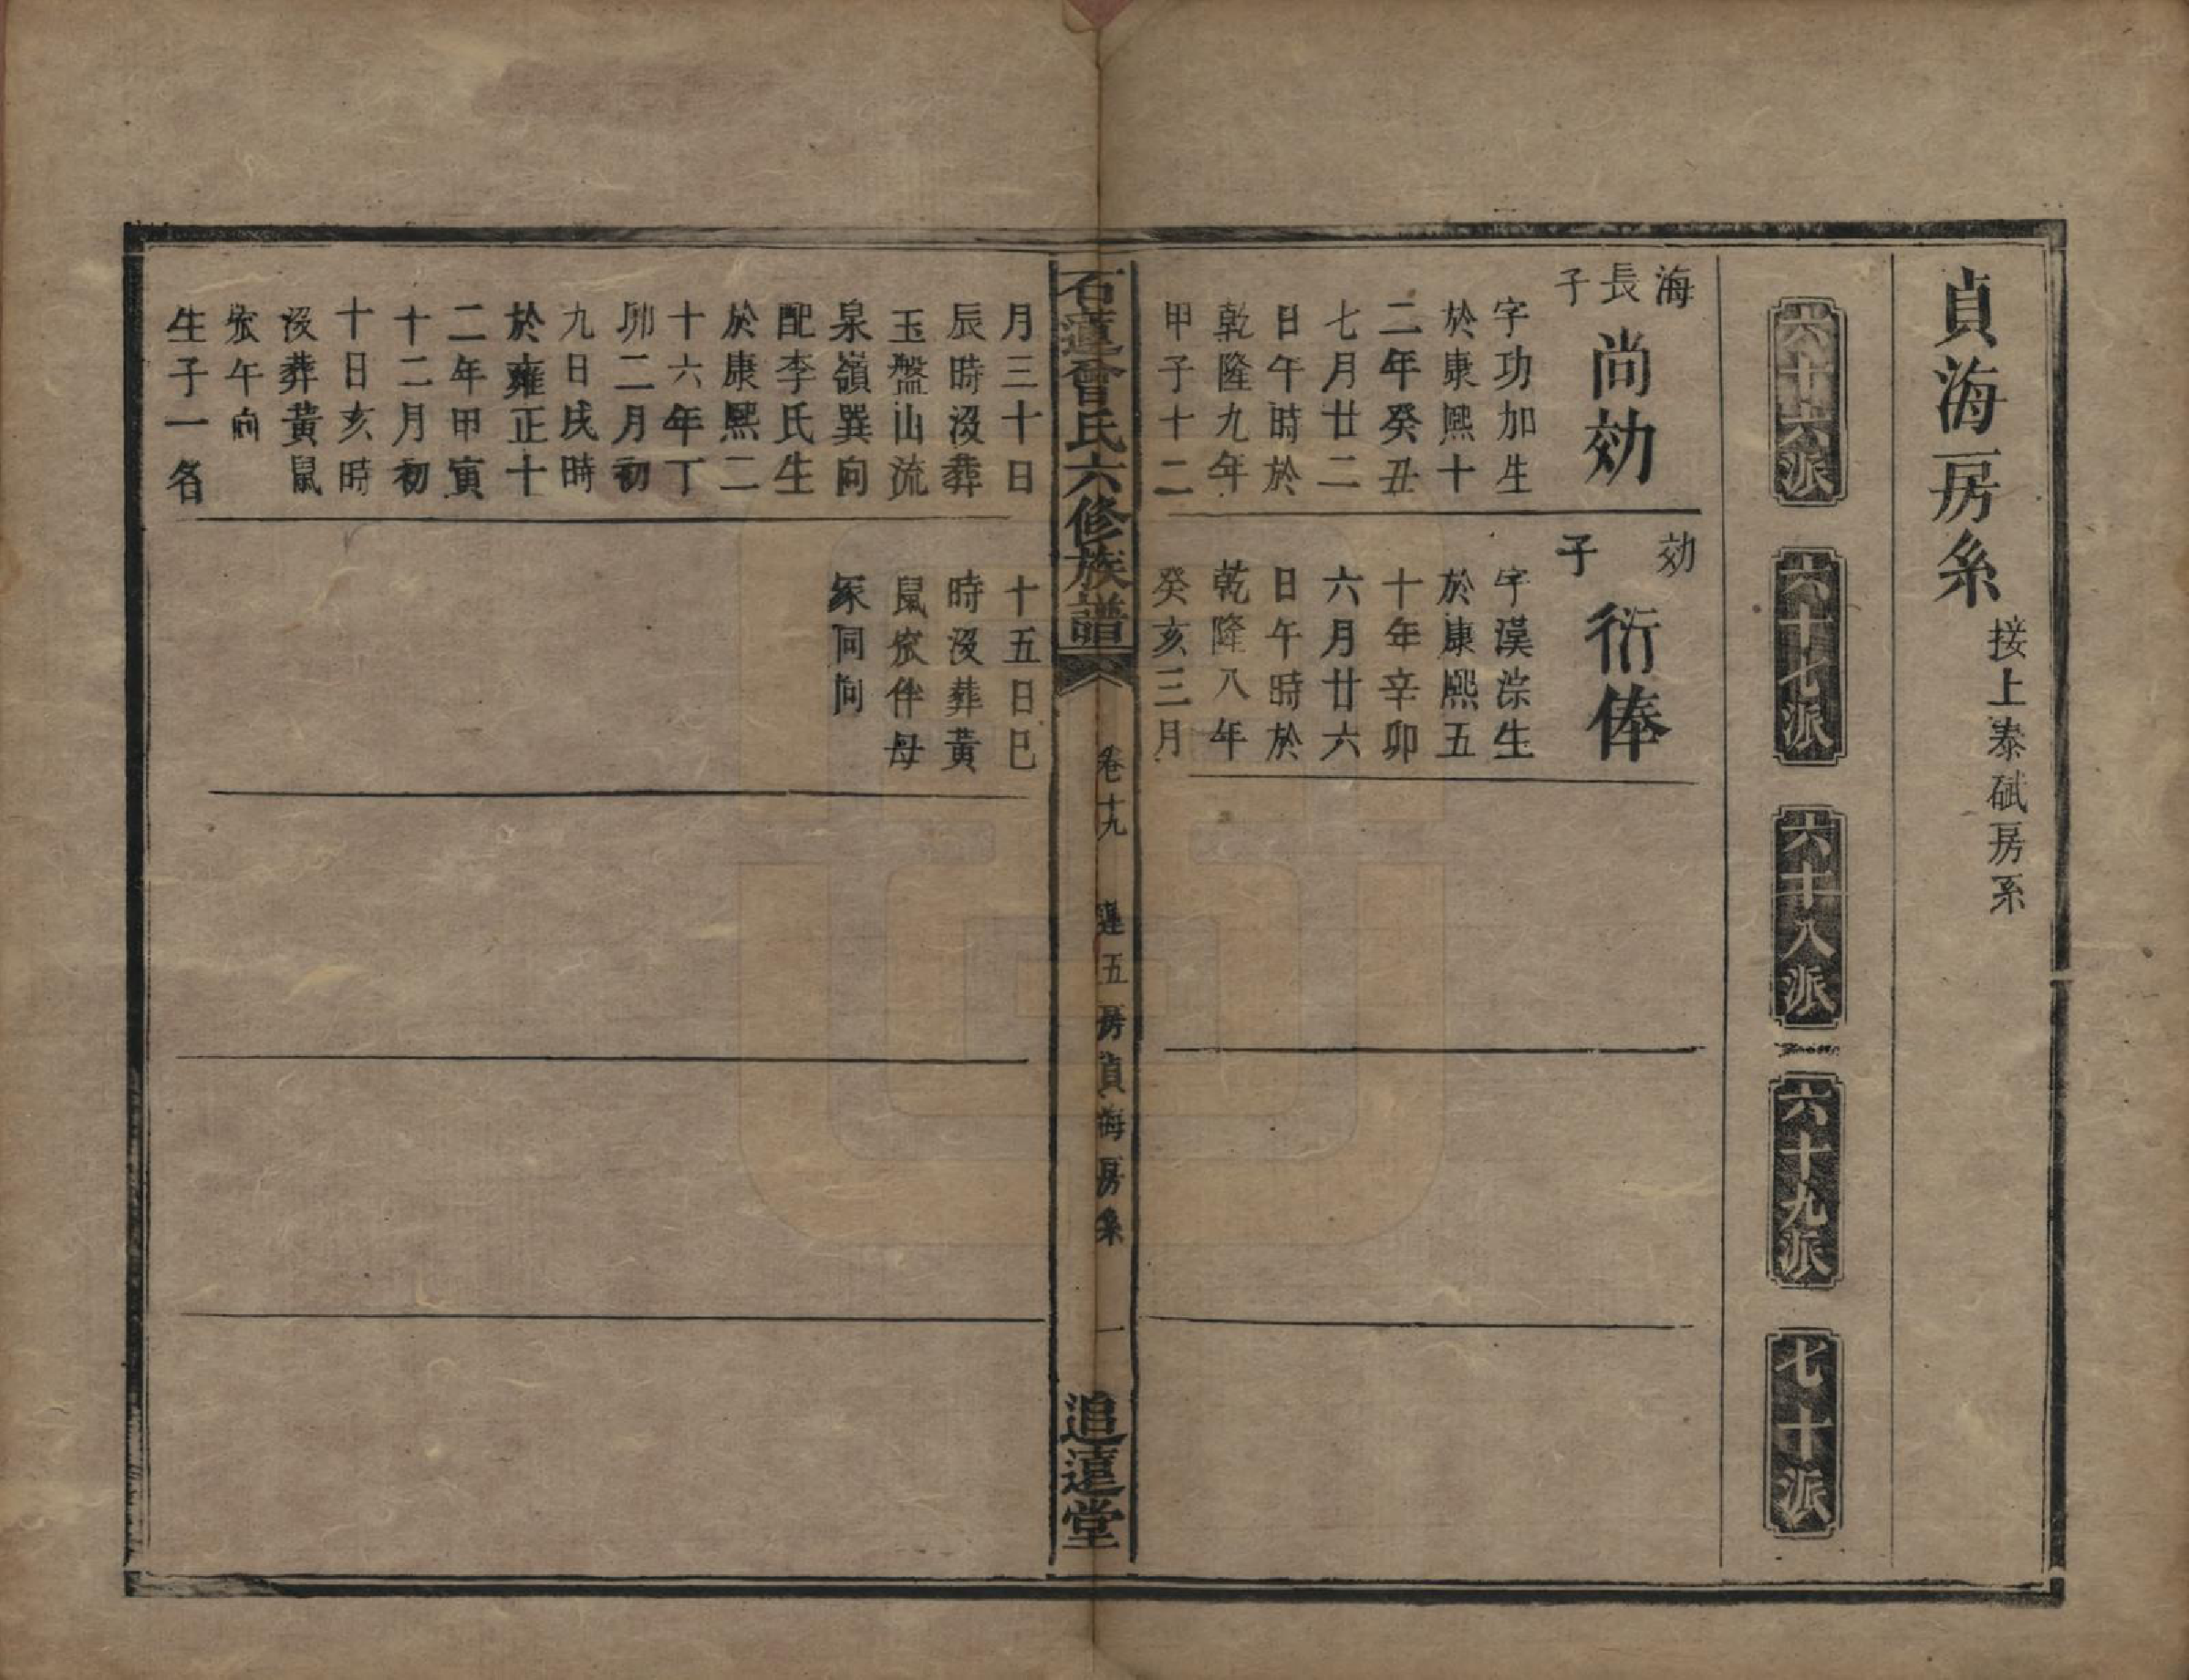 貞海房系
接上泰碔房系
六十六派
六十七派
六十八派
六十九派
七十派
海長子
尚効
字功加生
於康熙十
二年癸丑
七月廿二
日午時於
乾隆九年
甲子十二
月三十日
辰時没葬
玉盤山流
泉嶺巽向
配李氏生
於康熙二
十六年丁
卯二月初
九日戌時
於雍正十
二年甲寅
十二月初
十日亥時
没葬黃鼠
垇午向
生子一名
効子
衍俸
字漢淙生
於康熙五
十年辛卯
六月廿六
日午時於
乾隆八年
癸亥三月
十五日巳
時没葬黃
鼠垇伴母
冢同向
石蓮曾氏六修族譜
卷十九
蓮五房貞海房系
一
追遠堂